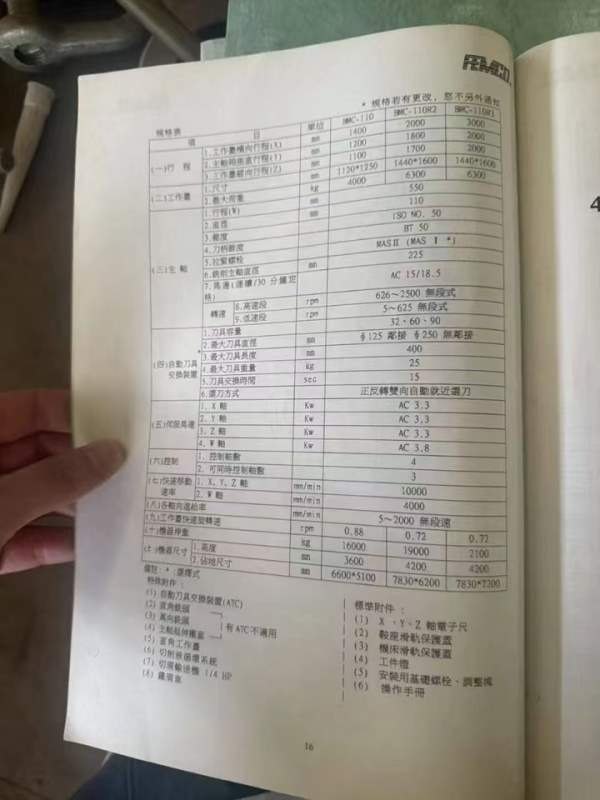 FEMCO
* 規格若有更改，恕不另外通知
規格表
項 目 單位 BMC-110 BMC-110R2 BMC-110R3
(一)行 程 1.工作臺橫向行程(X) mm 1400 2000 3000
2.主軸箱垂直行程(Y) mm 1200 1800 2000
3.工作臺縱向行程(Z) mm 1100 1700 2000
(二)工作臺 1.尺寸 1120*1250 1440*1600 1440*1600
2.最大荷重 kg 4000 6300 6300
(三)主 軸 1.行程(W) mm 550
2.直徑 mm 110
3.錐度 ISO NO. 50
4.刀柄錐度 BT 50
5.拉緊螺栓 MASⅡ (MAS Ⅰ *)
6.銑削主軸直徑 mm 225
7.馬達(連續/30 分鐘規格) AC 15/18.5
轉速 8.高速段 rpm 626~2500 無段式
9.低速段 rpm 5~625 無段式
(四)自動刀具交換裝置 * 1.刀具容量 32、60、90
2.最大刀具直徑 mm ∮125 鄰接 ∮250 無鄰接
3.最大刀具長度 mm 400
4.最大刀具重量 kg 25
5.刀具交換時間 sec 15
6.選刀方式 正反轉雙向自動就近選刀
(五)伺服馬達 1. X 軸 Kw AC 3.3
2. Y 軸 Kw AC 3.3
3. Z 軸 Kw AC 3.3
4. W 軸 Kw AC 3.8
(六)控制 1. 控制軸數 4
2. 可同時控制軸數 3
(七)快速移動速率 1. X、Y、Z 軸 mm/min 10000
2. W 軸 mm/min 4000
(八)各軸向進給率 mm/min 5~2000 無段速
(九)工作臺快速旋轉速 rpm 0.88 0.72 0.72
(十)機器淨重 kg 16000 19000 2100
(±)機器尺寸 1.高度 mm 3600 4200 4200
2.佔地尺寸 mm 6600*5100 7830*6200 7830*7200
備註: * :選擇式
特殊附件：
(1) 自動刀具交換裝置(ATC)
(2) 直角銑頭
(3) 萬向銑頭
(4) 主軸延伸護蓋
有 ATC不適用
(5) 直角工作臺
(6) 切削液循環系統
(7) 切屑輸送機 1/4 HP
(8) 鐵屑車
標準附件：
(1) X 、Y、Z 軸電子尺
(2) 鞍座滑軌保護蓋
(3) 機床滑軌保護蓋
(4) 工作燈
(5) 安裝用基礎螺栓、調整塊
(6) 操作手冊
16
4